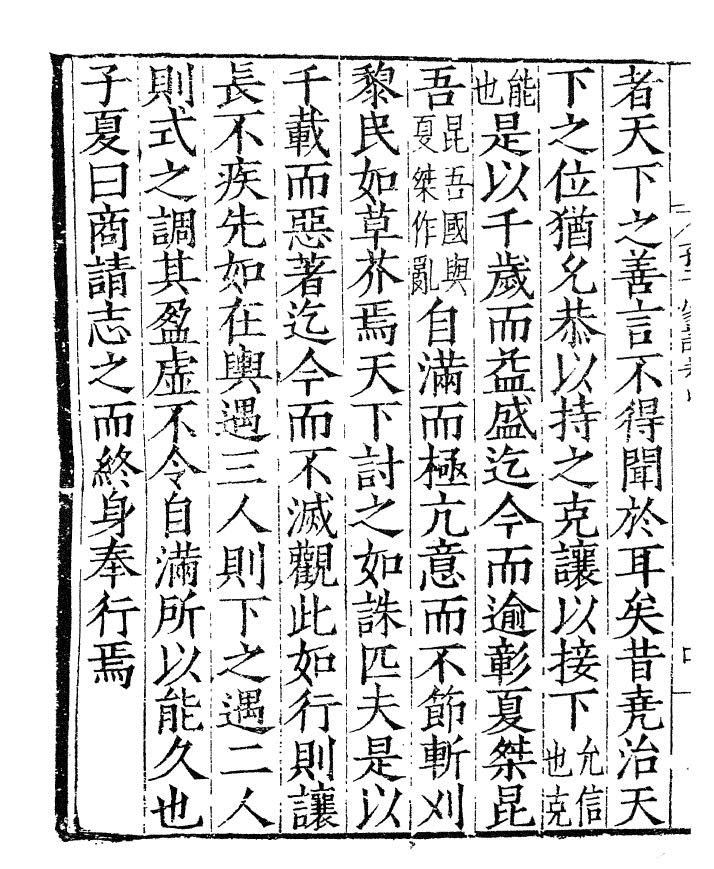 者天下之善言不得聞於耳矣昔堯治天
下之位猶允恭以持之克讓以接下允信也克
能也是以千歲而益盛迄今而逾彰夏桀昆
吾昆吾國與夏桀作亂自滿而極亢意而不節斬刈
黎民如草芥焉天下討之如誅匹夫是以
千載而惡著迄今而不滅觀此如行則讓
長不疾先如在輿遇三人則下之遇二人
則式之調其盈虛不令自滿所以能久也
子夏曰商請志之而終身奉行焉